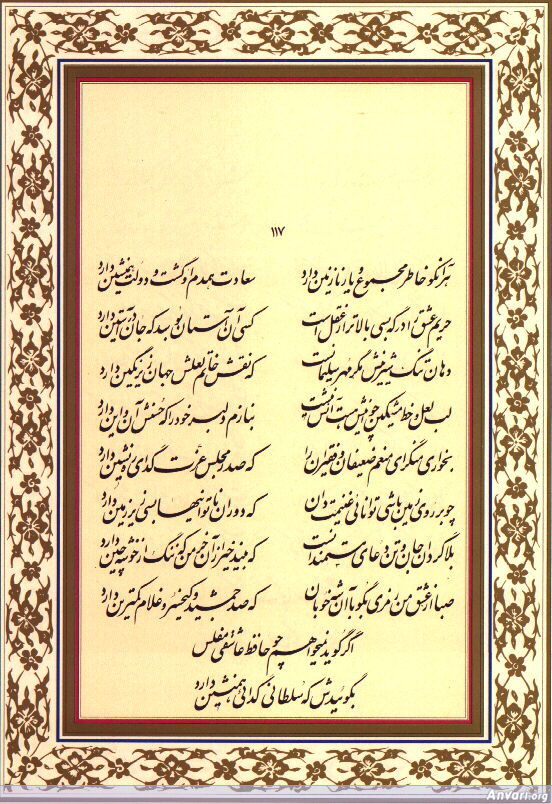 ۱۱۷
هر آنکو خاطر مجموع و یار نازنین دارد سعادت همدم او گشت و دولت همنشین دارد
حریم عشق را درگه بسی بالاتر از عقل است کسی آن آستان بوسد که جان در آستین دارد
دهان تنگ شیرینش مگر مهر سلیمانست که نقش خاتم لعلش جهان زیر نگین دارد
لب لعل و خط مشکین چو آنش هست اینش هست بنازم دلبر خود را که حسنش آن و این دارد
بخواری منگر ای منعم ضعیفان و فقیران را که صدر مجلس عزت گدای ره نشین دارد
چو بر روی زمین باشی توانائی غنیمت دان که دوران ناتوانیها بسی زیر زمین دارد
بلاگردان جان و تن دعای مستمندانست که بیند خیر از آن خرمن که ننگ از خوشه چین دارد
صبا از عشق من رمزی بگو با آن شه خوبان که صد جمشید و کیخسرو غلام کمترین دارد
اگر گوید نمیخواهم چو حافظ عاشقی مفلس
بگوئیدش که سلطانی گدائی همنشین دارد
Anvari.org